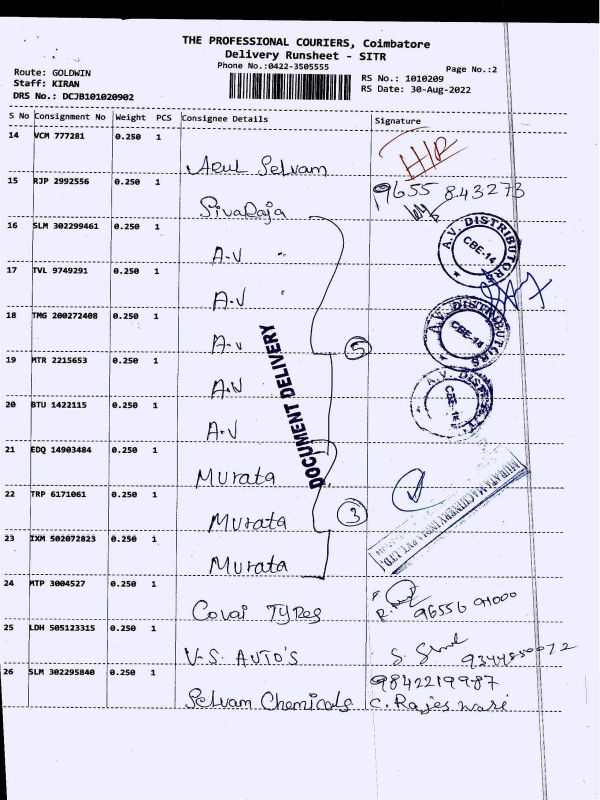 THE PROFESSIONAL COURIERS, Coimbatore
Delivery Runsheet - SITR
Phone No.:0422-3505555
Page No.:2
Route: GOLDWIN
Staff: KIRAN
DRS No.: DCJB101020902
RS No.: 1010209
RS Date: 30-Aug-2022
S No Consignment No Weight PCS Consignee Details Signature
14 VCM 777281 0.250 1
Arul Selvam
H/R
15 RJP 2992556 0.250 1
SivaRaja
9655 843273
16 SLM 302299461 0.250 1
A-V "
A.V. DISTRIBUTORS
CBE-14
17 TVL 9749291 0.250 1
A-V "
18 TMG 200272408 0.250 1
A-V
A.V. DISTRIBUTORS
CBE-14
DOCUMENT DELIVERY
5
19 MTR 2215653 0.250 1
A.V
A.V. DIST
CBE-14
20 BTU 1422115 0.250 1
A-V
21 EDQ 14903484 0.250 1
Murata
MURATA MACHINERY INDIA PVT. LTD.
22 TRP 6171061 0.250 1
Murata
3
23 IXM 502072823 0.250 1
Murata
24 MTP 3004527 0.250 1
Covai TYRes
96556 91000
25 LDH 505123315 0.250 1
V-S. AUTO'S
9344850072
26 SLM 302295840 0.250 1
Selvam Chemicals
9842219987
C. Rajeswari